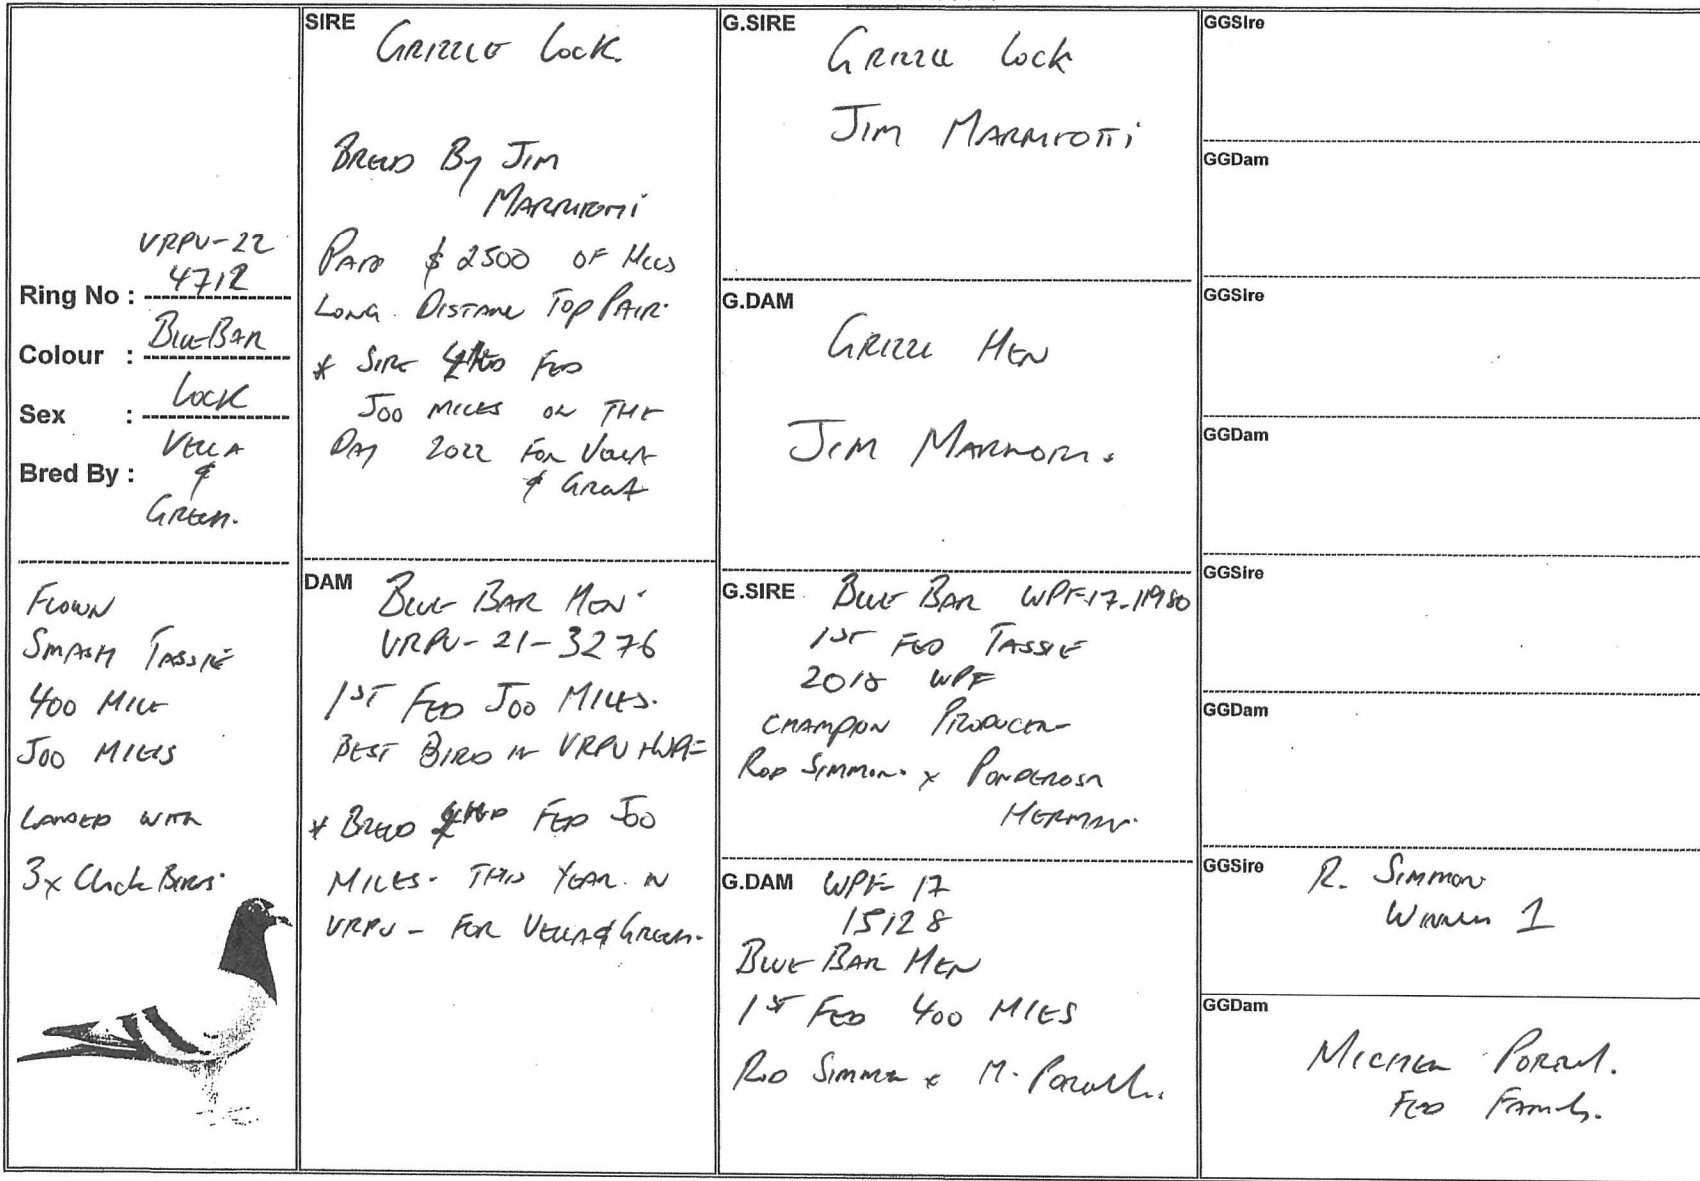 VRPU-22
4712
Ring No :
Colour : Blue Bar
Sex : Cock
Bred By : Vella
&
Green.
Flown
Smash Tassie
400 Mile
500 Miles
Landed with
3x Clock Birds.
SIRE
Grizzle Cock.
Bred By Jim
Marriotti
Paid $2500 of His
Long Distance Top Pair.
* Sire Fed
500 Miles on the
Day 2022 For Vella
& Green
DAM
Blue Bar Hen.
VRPU-21-3276
1st Fed 500 Miles.
Best Bird in VRPU
* Bred Fed 500
Miles. This Year. in
VRPU - For Vella & Green.
G.SIRE
Grizzle Cock
Jim Marriotti
G.DAM
Grizzle Hen
Jim Marriotti.
G.SIRE
Blue Bar WPF-17-11980
1st Fed Tassie
2018 WPF
Champion Producer
Rod Simmon. x Ponderosa
Herman.
G.DAM WPF 17
15128
Blue Bar Hen
1st Fed 400 Miles
Rod Simmon x M.
GGSire
GGDam
GGSire
GGDam
GGSire
GGDam
GGSire
R. Simmon
Winner 1
GGDam
Fed Family.